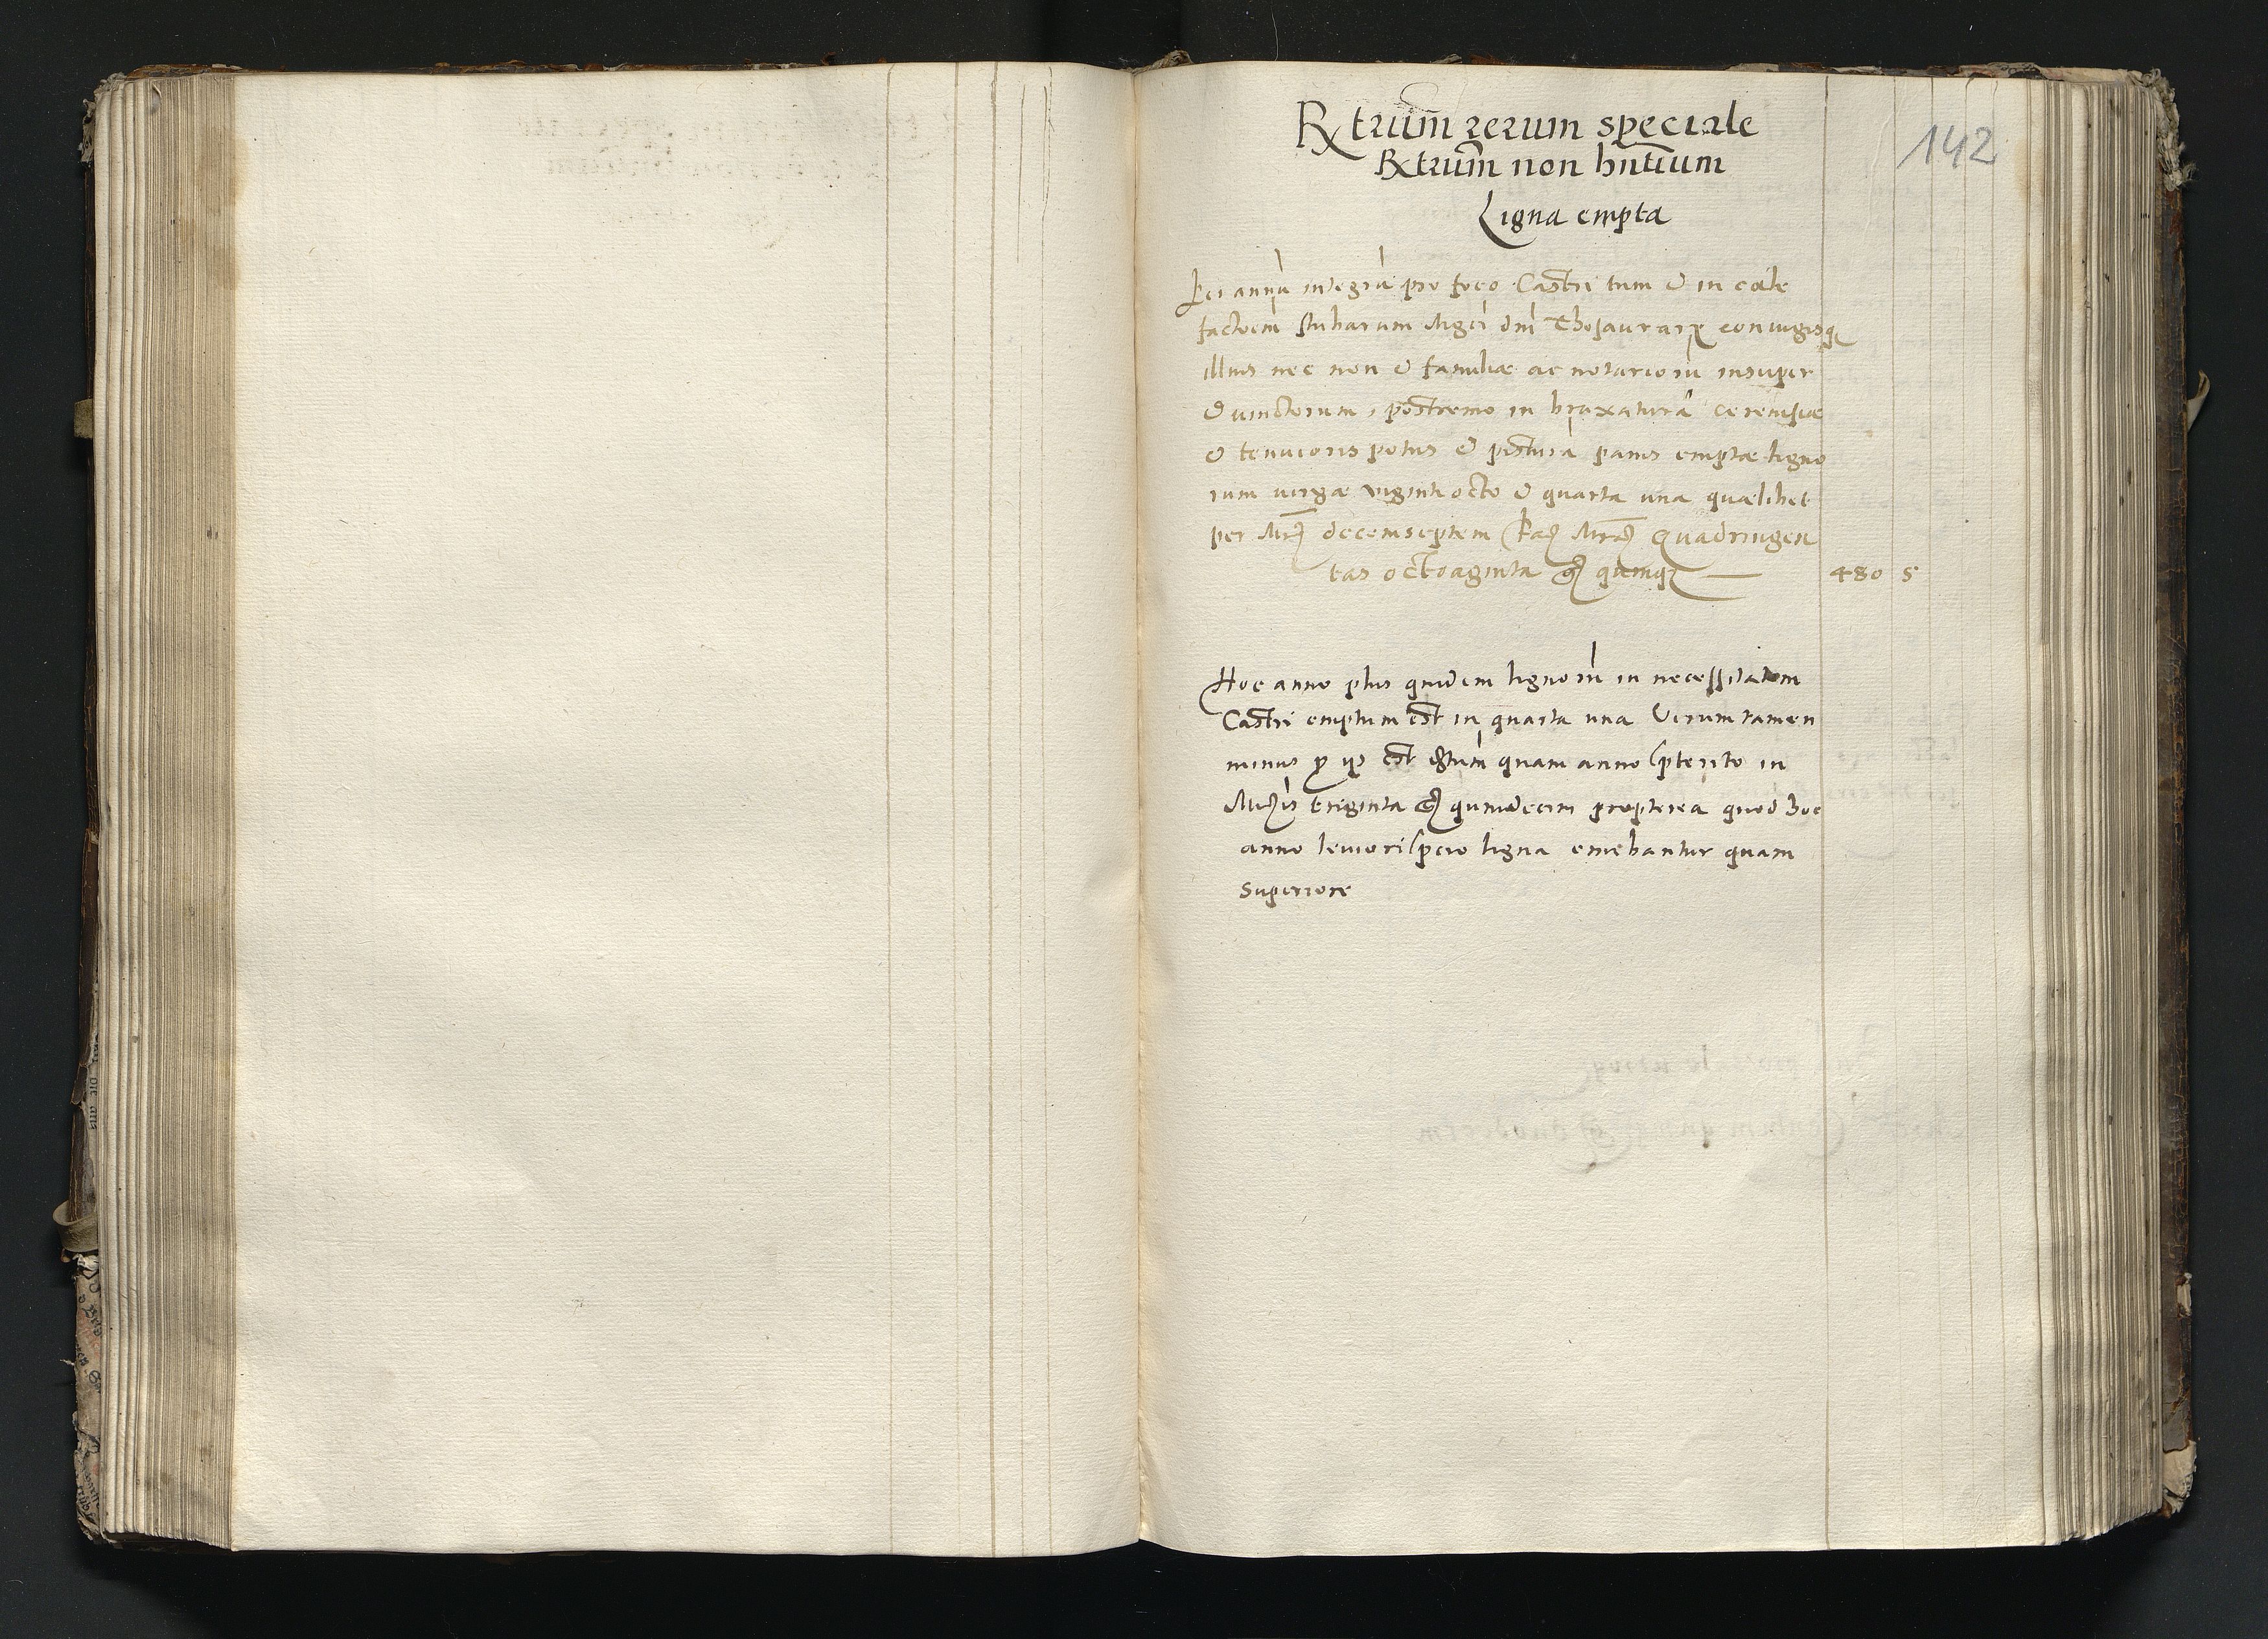 Rxtrum̄ rerum speciale
142
Rxtrum̄ non hn̄tium
Ligna empta
Per annū integrū pro foco Castri tum et in cale
factoēm stubarum Mgci dn̄i Thesaurarij coniugisq
illius nec non et familiæ ac notariorū insuper
et vinctorum, postremo in braxaturā cereuisiæ
et tenuioris potus et pistura panis emptæ ligno
rum virgæ viginti octo et quarta una quælibet
per Mrc decemseptem Fac Mrcas Quadringen
tas octoaginta g quinq — 480 5
Hoc anno plus quidem lignorū in necessitatem
Castri emptum est in quarta una Verum tamen
minus p ijs est extum̄ quam anno pterito in
Mrcis triginta g quindecim propterea quod hoc
anno leuiori pcio ligna emebantur quam
superiore